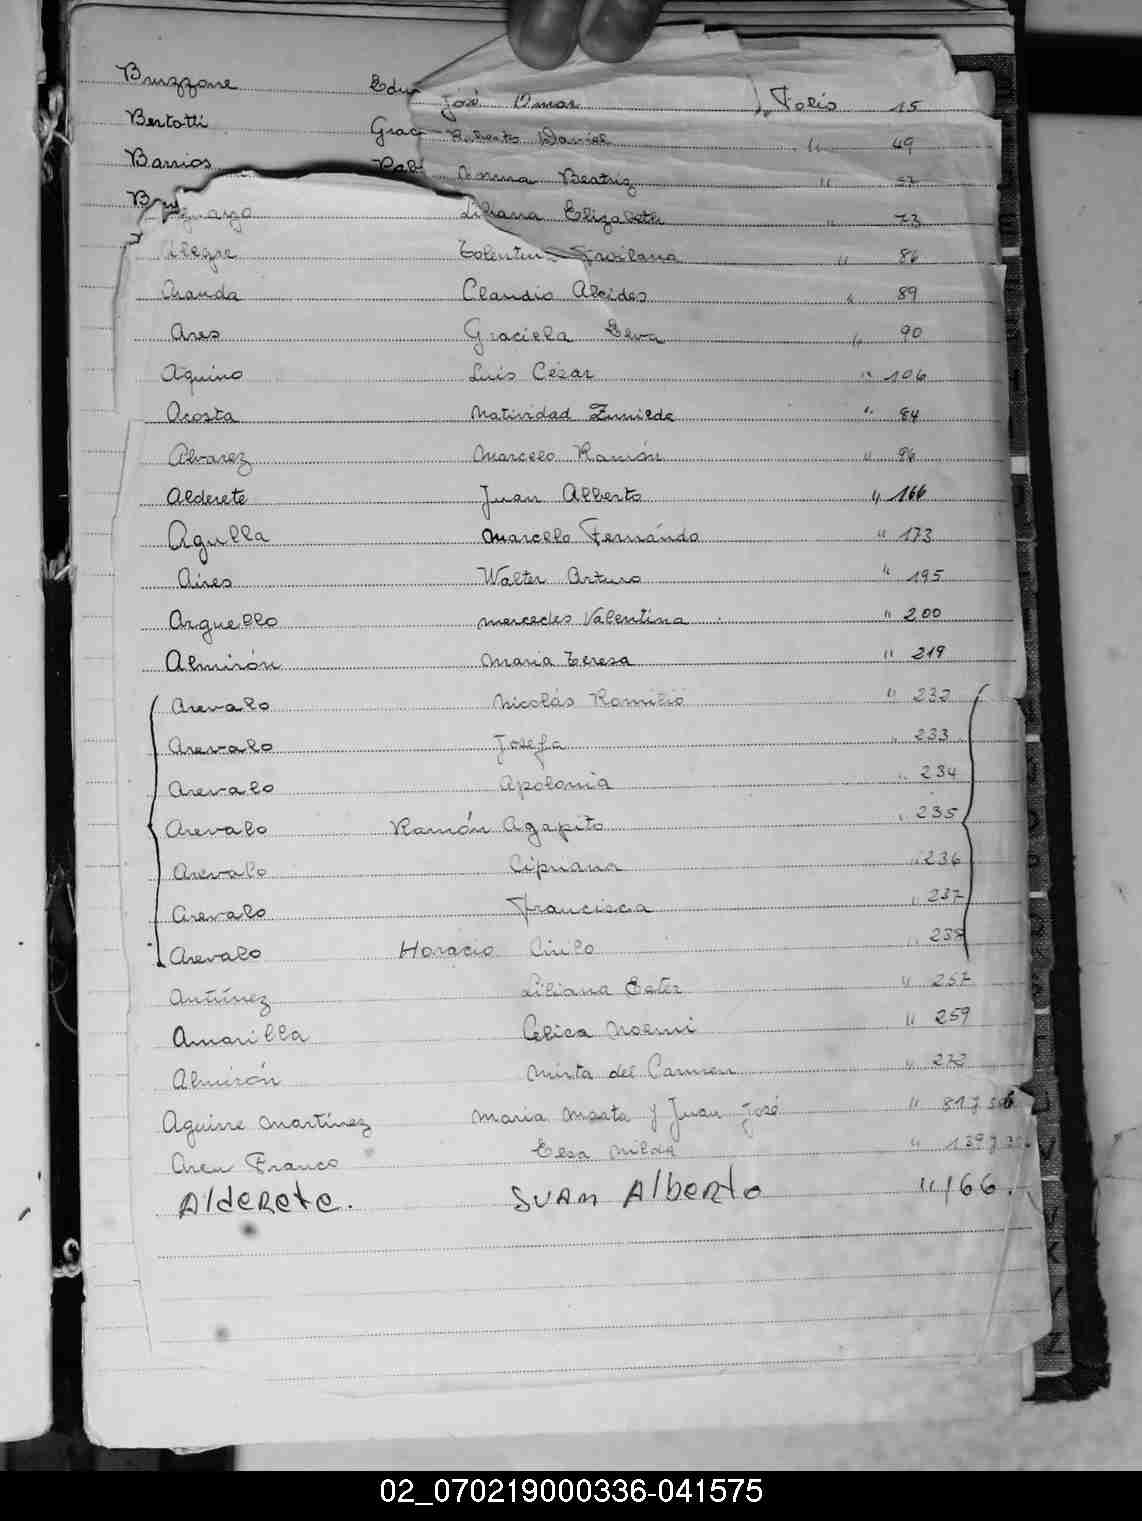 Bruzzone Edu José Omar Folio 15
Bertotti Grac Roberto Daniel " 49
Barrios Pabl Norma Beatriz " 57
Liliana Elizabeth " 73
Alegre Tolentin Favilana " 86
Aranda Claudio Alcides " 89
Ares Graciela Elva " 90
Aquino Luis César " 106
Acosta Natividad Zunilda " 84
Alvarez Marcelo Ramón " 96
Alderete Juan Alberto " 166
Agulla Marcelo Fernándo " 173
Aires Walter Arturo " 195
Arguello Mercedes Valentina " 200
Almirón Maria Teresa " 219
Arevalo Nicolás Romilio " 232
Arevalo Josefa " 233
Arevalo Apolonia " 234
Arevalo Ramón Agapito " 235
Arevalo Cipriana " 236
Arevalo Francisca " 237
Arevalo Horacio Cirilo " 238
Antúnez Liliana Ester " 257
Amarilla Celica Noemi " 259
Almirón Mirta del Carmen " 272
Aguirre Martínez Maria Marta y Juan José " 81 y 306
Aren Franco Elsa Nilda " 139 y 326
Alderete. Juan Alberto " 166.
02_070219000336-041575